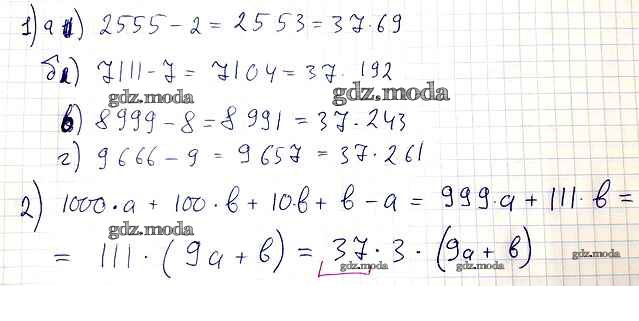 1) а) 2555 - 2 = 2553 = 37·69
б) 7111 - 7 = 7104 = 37·192
gdz.moda
gdz.moda
в) 8999 - 8 = 8991 = 37·243
г) 9666 - 9 = 9657 = 37·261
2) 1000·а + 100·в + 10·в + в - а = 999·а + 111·в =
gdz.moda
= 111·(9а + в) = 37·3·(9а + в)
gdz.moda
gdz.moda
gdz.moda